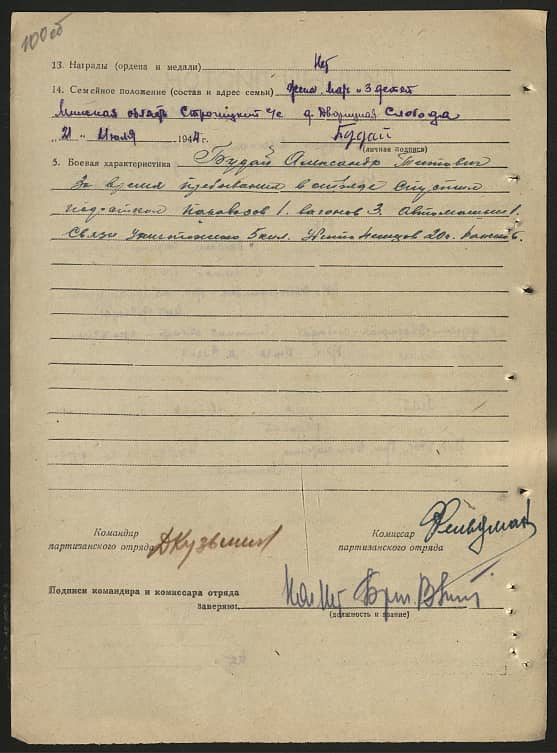 100об
13. Награды (ордена и медали) Нет
14. Семейное положение (состав и адрес семьи) 3 детей
Минская область с/с д. Дворицкая Слобода
„21“ Июля 1944 г. Будай
(личная подпись)
5. Боевая характеристика Будай Александр Титович
За время пребывания в отряде спустил
под откос паровозов 1. вагонов 3. Автомашин 1.
связи уничтожено 5 кил. Немцов 20
Командир
партизанского отряда ДКузьмин
Комиссар
партизанского отряда Фельдман
Подписи командира и комиссара отряда
заверяют
(должность и звание)